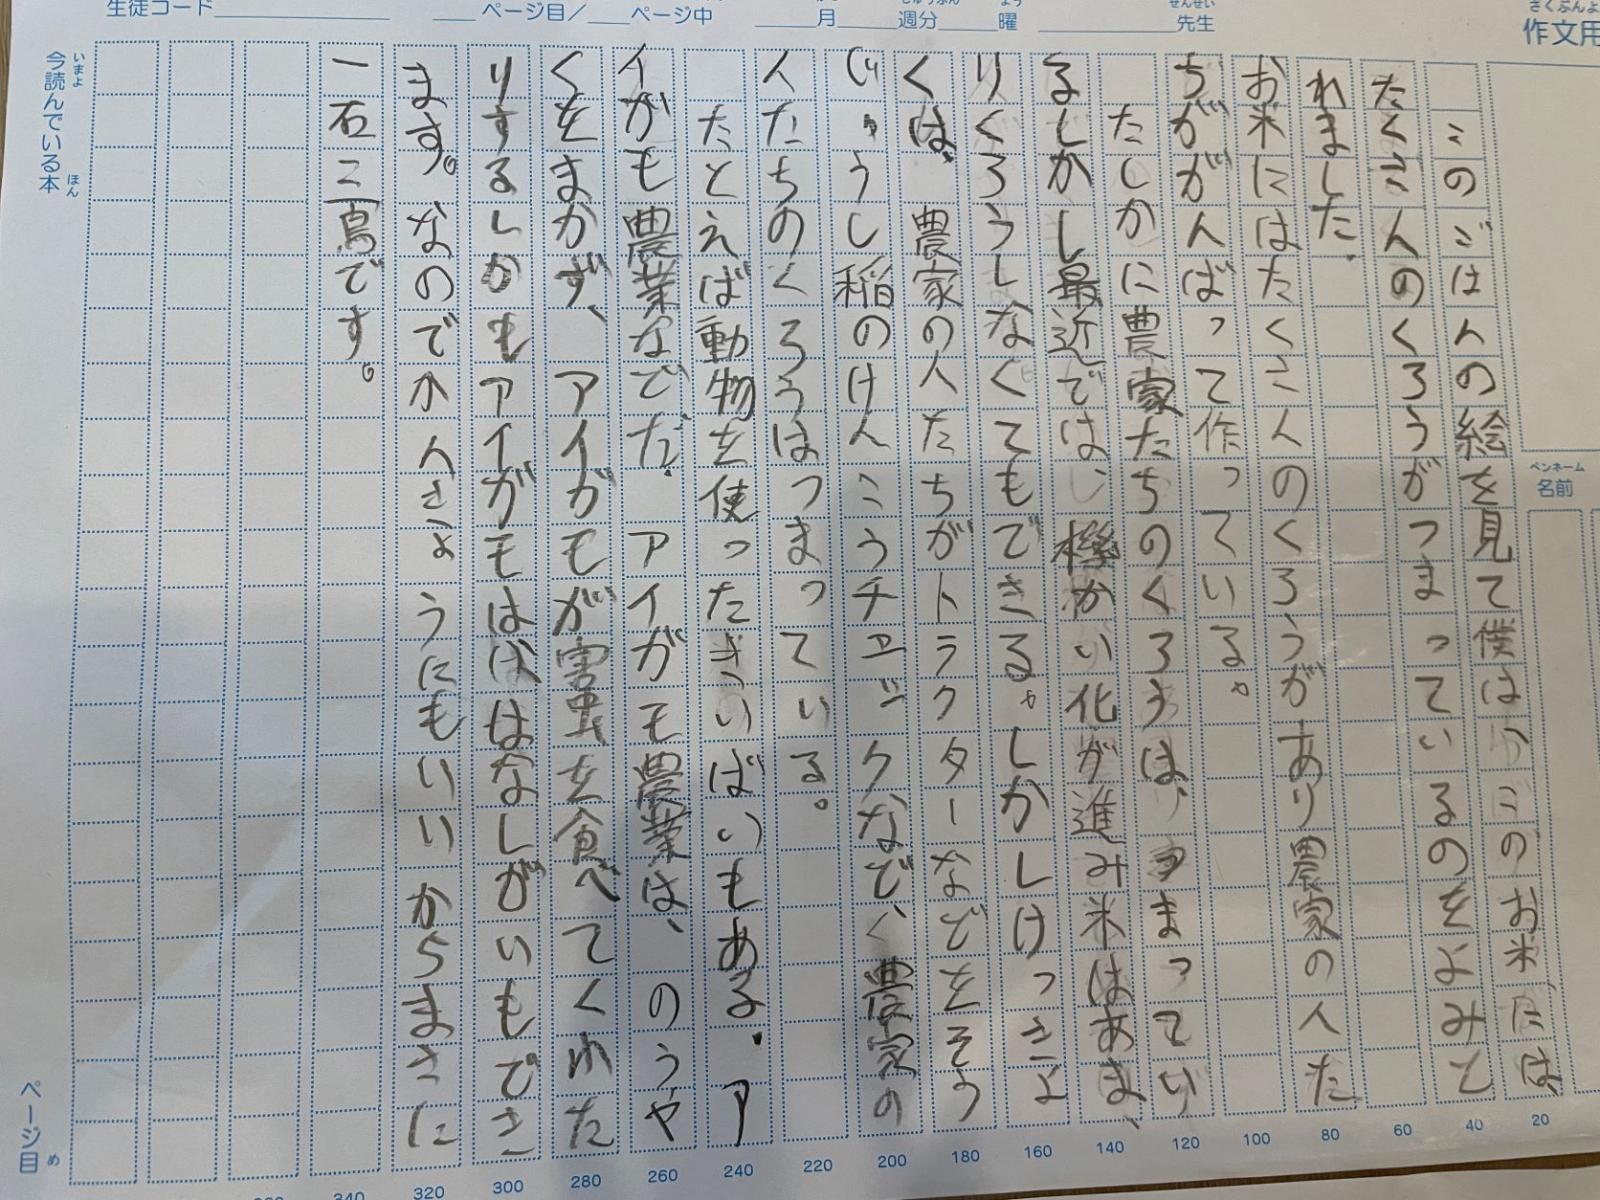 生徒コード
ページ目/ ページ中
月 週分 曜
先生
作文用
ペンネーム
名前
このごはんの絵を見て僕は
このお米には、
たくさんのくろうがつまっているのをよみと
れました。
お米にはたくさんのくろうがあり農家の人た
ちががんばって作っている。
たしかに農家たちのくろうは、つまってい
るしかし最近では、機かい化が進み米はあま
りくろうしなくてもできる。しかしけっきょ
くは、農家の人たちがトラクターなどをそう
じゅうし稲のけんこうチェックなどで農家の
人たちのくろうはつまっている。
たとえば動物を使ったさいばいもある。ア
イがも農業などだ。アイガモ農業は、のうや
くをまかず、アイガモが害虫を食べてくれた
りするしかもアイガモははなしがいもでき
ます。なのでかんきょうにもいいからまさに
一石二鳥です。
今読んでいる本
いまよ ほん
ページ目
め
20
40
60
80
100
120
140
160
180
200
220
240
260
280
300
320
340